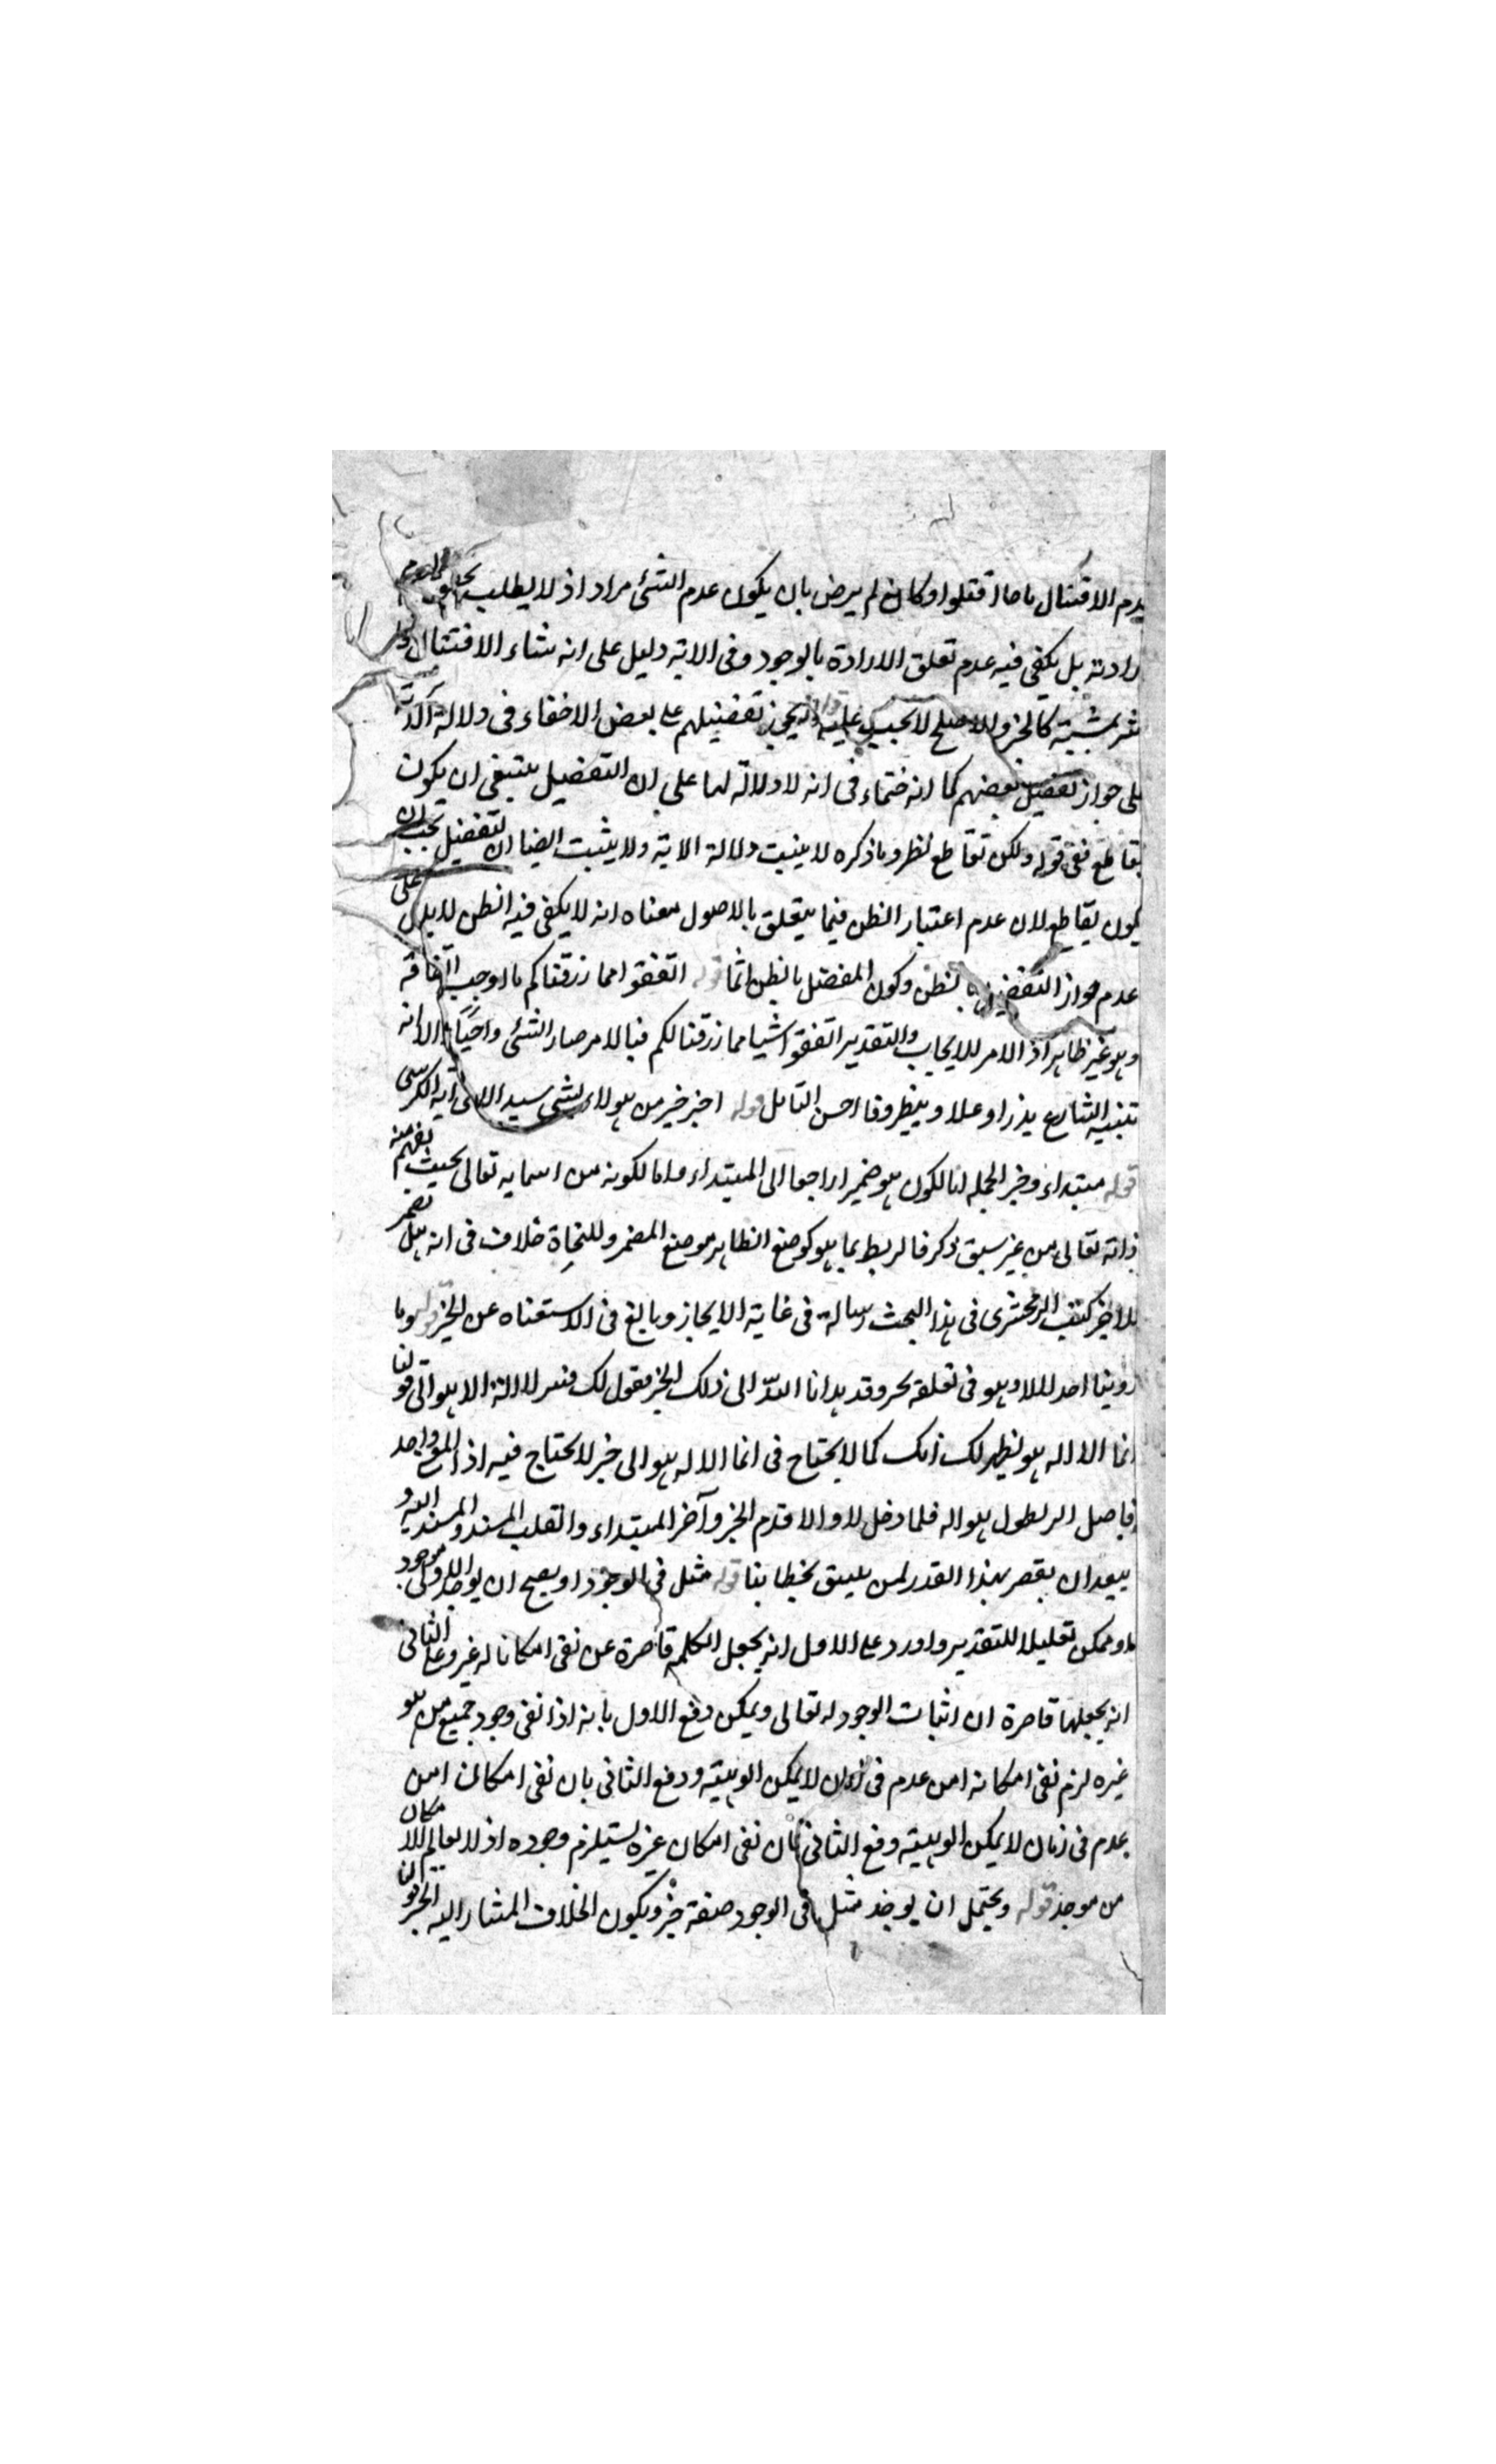 عدم الاقتتال ما اقتتلوا وكان لم يرض بان يكون عدم الشئ مراد اذ لا يطلب
ارادته بل يكفى فيه عدم تعلق الارادة بالوجود وفى الاية دليل على انه شاء الاقتتال
كالخير والاصلح لا يجب عليه قوله يجوز تفضيلهم على بعض لا خفاء فى دلالة
على جواز تفضيل بعضهم كما انه فى انه لا دلالة لها على ان التفضيل ينبغى ان يكون
بقاطع ففى قوله ولكن بقاطع نظر وما ذكره لا يثبت دلالة الاية ولا يثبت ايضا ان التفضيل يجب ان
يكون بقاطع لان عدم اعتبار الظن فيما يتعلق بالاصول معناه انه لا يكفى فيه الظن لا يدل على
عدم جواز التفضيل بالظن وكون المفضل بالظن اثما قوله انفقوا مما رزقناكم ما اوجب انفاقه
وهو غير ظاهر اذ الامر للايجاب والتقدير انفقوا اشيا مما رزقنا لكم فبالامر صار الشئ واجبا الا انه
وينظر وقا احسن التامل قوله اخبر خير من هولاء سيد الاى اية الكرسى
قوله مبتداء وخبر الجملة اما لكون هو ضميرا راجعا الى المبتداء واما لكونه من اسمايه تعالى بحيث يفهم منه
ذاته تعالى من غير سبق ذكر فالربط بما هو كوضع الظاهر موضع المضمر وللنحاة خلاف فى انه هل يضمر
للا خبر كتب الزمخشرى فى هذا البحث رسالة فى غاية الايجاز وبالغ فى الاستغناه عن الخبر قوله وما
روينا احد للا وهو فى تعلقه بحر وقد هدانا الله الى ذلك الخبر فنقول لك فسر لا اله الا هو الى قولنا
انما الاله هو ليظهر لك انك كما لا يحتاج فى انما الاله هو الى خبر لا يحتاج فيه اذ المؤدى واحد
فاصل التركيب هو اله فلما دخل لا والا قدم الخبر وآخر المبتداء وانقلب المسند والمسند اليه و
يبعد ان يقصر بهذا القدر لمن يليق بخطابنا قوله مثل فى الوجود او يصح ان يوجد الاولى موجود
او ممكن تعليلا للتقدير واورد على الاول انه يجعل الكلمة قاصرة عن نفى امكان اله غيره وعلى الثانى
انه يجعلها قاصرة ان اثبات الوجود له تعالى ويمكن دفع الاول بانه اذا نفى وجود جميع من هو
غيره لزم نفى امكانه امن عدم فى زمان لا يمكن الوهيته ودفع الثانى بان نفى امكان امن
عدم فى زمان لا يمكن الوهيته وفع الثانى بان نفى امكان غيره يستلزم وجوده اذ لا بد لعالم الامكان
من موجد قوله ويحتمل ان يوجد مثل فى الوجود صفة خبر ويكون الخلاف المشار اليه